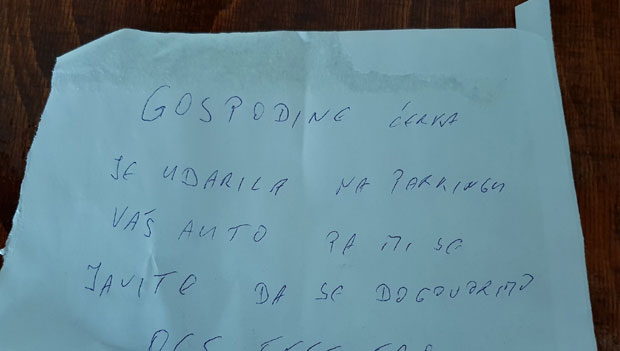 GOSPODINE ĆERKA
JE UDARILA NA PARKINGU
VAŠ AUTO PA MI SE
JAVITE DA SE DOGOVORIMO